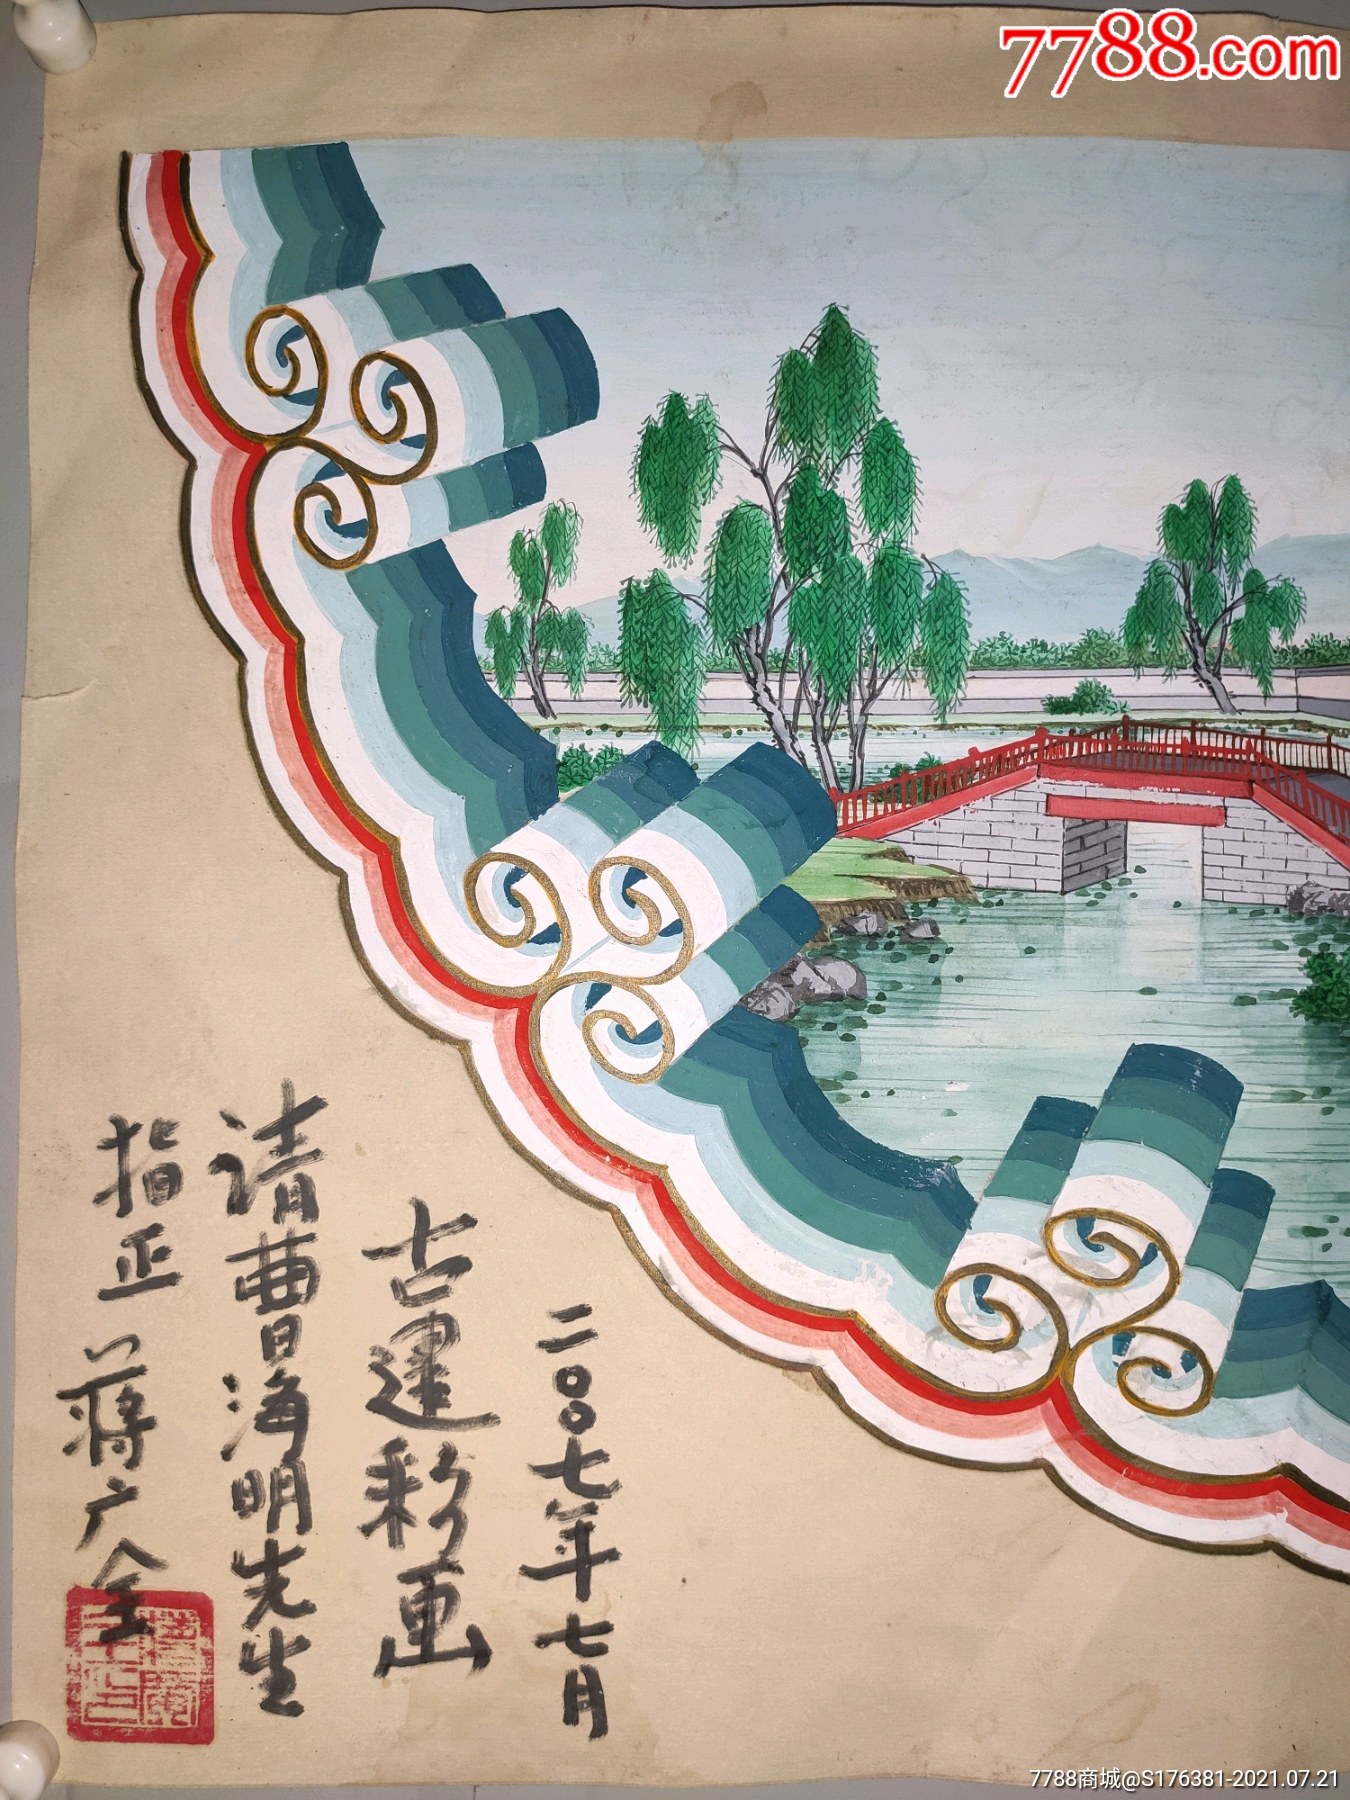 7788.com
二〇〇七年七月
古建彩画
请曹海明先生
指正 蒋广全
7788商城@S176381-2021.07.21